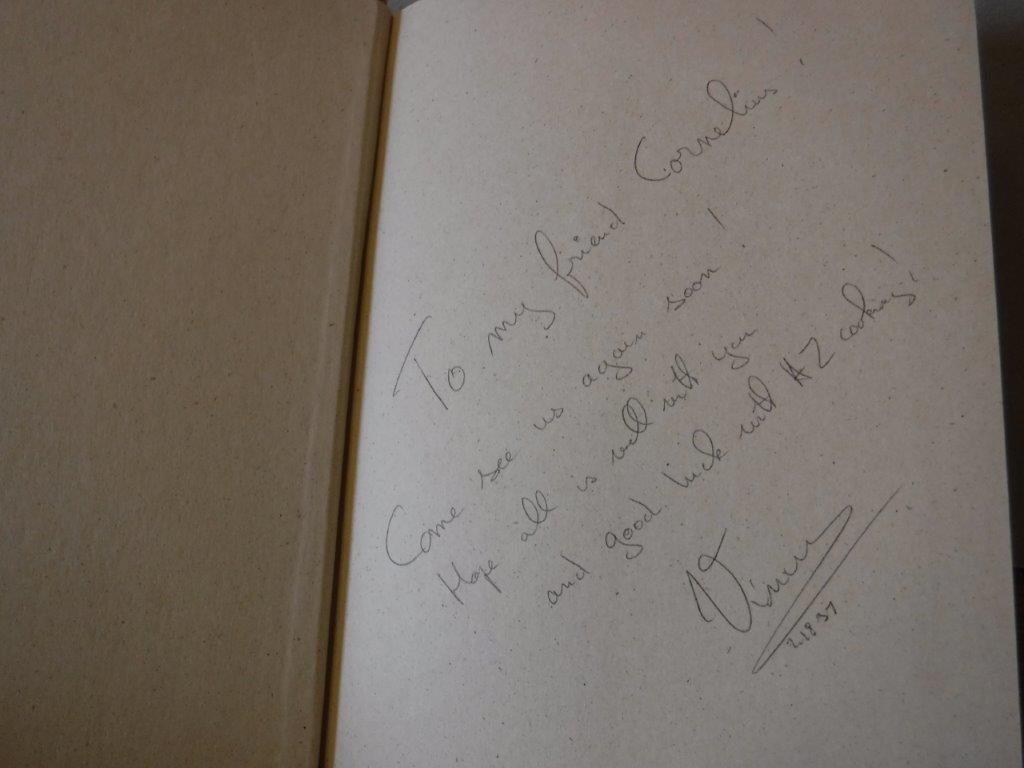 To my friend Cornelius!
Come see us again soon!
Hope all is well with you
and good luck with AZ cooking!